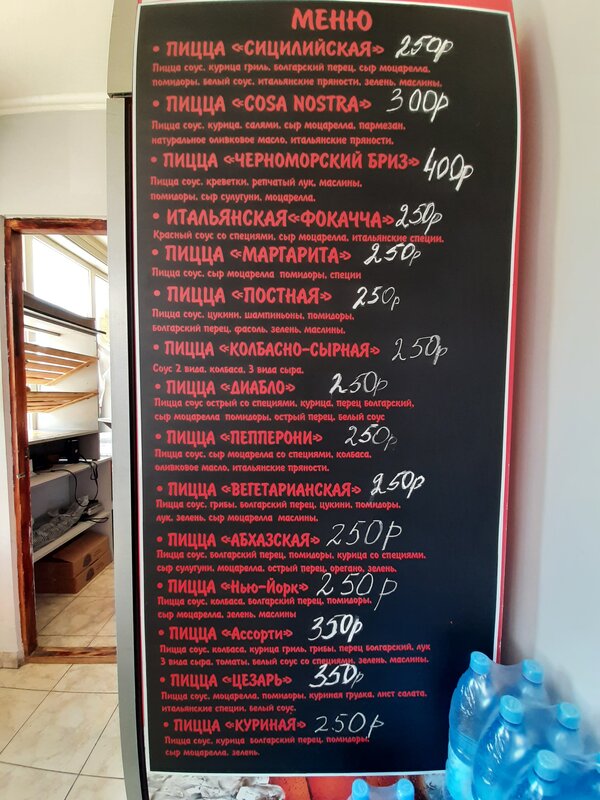 МЕНЮ
• ПИЦЦА «СИЦИЛИЙСКАЯ» 250р
Пицца соус, курица гриль, болгарский перец, сыр моцарелла,
помидоры, белый соус, итальянские пряности, зелень, маслины.
• ПИЦЦА «COSA NOSTRA» 300р
Пицца соус, курица, салями, сыр моцарелла, пармезан,
натуральное оливковое масло, итальянские пряности.
• ПИЦЦА «ЧЕРНОМОРСКИЙ БРИЗ» 400р
Пицца соус, креветки, репчатый лук, маслины,
помидоры, сыр сулугуни, моцарелла.
• ИТАЛЬЯНСКАЯ «ФОКАЧЧА» 250р
Красный соус со специями, сыр моцарелла, итальянские специи.
• ПИЦЦА «МАРГАРИТА» 250р
Пицца соус, сыр моцарелла помидоры, специи
• ПИЦЦА «ПОСТНАЯ» 250р
Пицца соус, цукини, шампиньоны, помидоры,
Болгарский перец, фасоль, зелень, маслины.
• ПИЦЦА «КОЛБАСНО-СЫРНАЯ» 250р
Соус 2 вида, колбаса, 3 вида сыра.
• ПИЦЦА «ДИАБЛО» 250р
Пицца соус острый со специями, курица, перец болгарский,
сыр моцарелла помидоры, острый перец, белый соус
• ПИЦЦА «ПЕППЕРОНИ» 250р
Пицца соус, сыр моцарелла со специями, колбаса,
оливковое масло, итальянские пряности.
• ПИЦЦА «ВЕГЕТАРИАНСКАЯ» 250р
Пицца соус, грибы, болгарский перец, цукини, помидоры,
лук, зелень, сыр моцарелла маслины.
• ПИЦЦА «АБХАЗСКАЯ» 250р
Пицца соус, болгарский перец, помидоры, курица со специями,
сыр сулугуни, моцарелла, острый перец, орегано, зелень.
• ПИЦЦА «Нью-Йорк» 250р
Пицца соус, колбаса, болгарский перец, помидоры,
сыр моцарелла, зелень, маслины
• ПИЦЦА «Ассорти» 350р
Пицца соус, колбаса, курица гриль, грибы, перец болгарский, лук
3 вида сыра, томаты, белый соус со специями, зелень, маслины.
• ПИЦЦА «ЦЕЗАРЬ» 350р
Пицца соус, моцарелла, помидоры, куриная грудка, лист салата,
итальянские специи, белый соус.
• ПИЦЦА «КУРИНАЯ» 250р
Пицца соус, курица болгарский перец, помидоры,
сыр моцарелла, зелень.